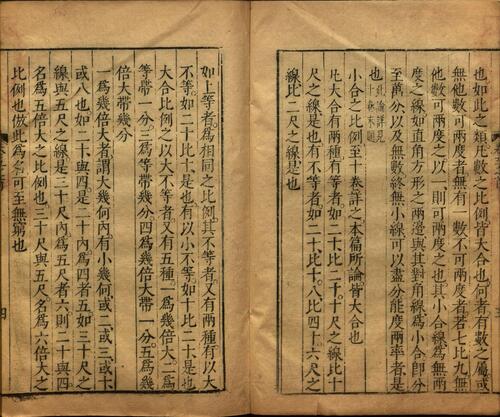 也如此之類凡數之比例皆大合也何者有數之屬或
無他數可兩度者無有一數不可兩度者若七比九無
他數可兩度之以一則可兩度之也其小合線為無兩
度之線如直角方形之兩邊與其對角線為小合即分
至萬分以及無數終無小線可以盡分能度兩率者是
也此論詳見十卷末題
小合之比例至十卷詳之本篇所論皆大合也
凡大合有兩種有等者如二十比二十十尺之線比十
尺之線是也有不等者如二十比十八比四十六尺之
線比二尺之線是也
如上等者為相同之比例其不等者又有兩種有以大
不等如二十比十是也有以小不等如十比二十是也
大合比例之以大不等者又有五種一為幾倍大二為
等帶一分三為等帶幾分四為幾倍大帶一分五為幾
倍大帶幾分
一為幾倍大者謂大幾何內有小幾何或二或三或十
或八也如二十與四是二十內為四者五如三十尺之
線與五尺之線是三十尺內為五尺者六則二十與四
名為五倍大之比例也三十尺與五尺名為六倍大之
比例也倣此為名可至無窮也
四